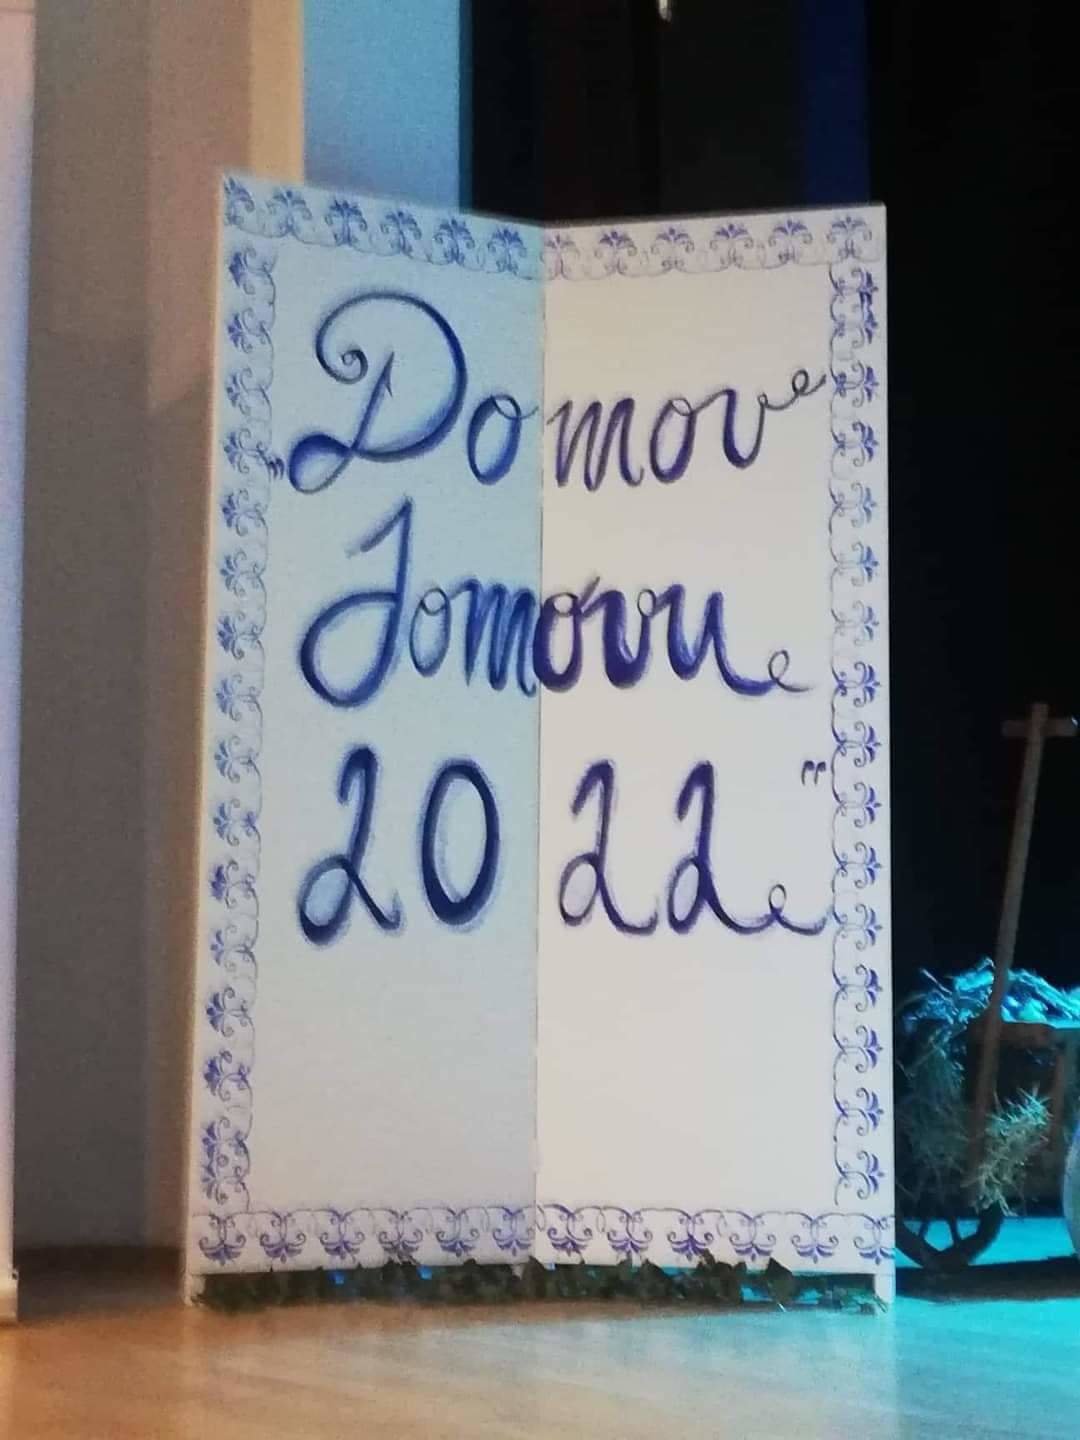 „Domov
domovu
2022"